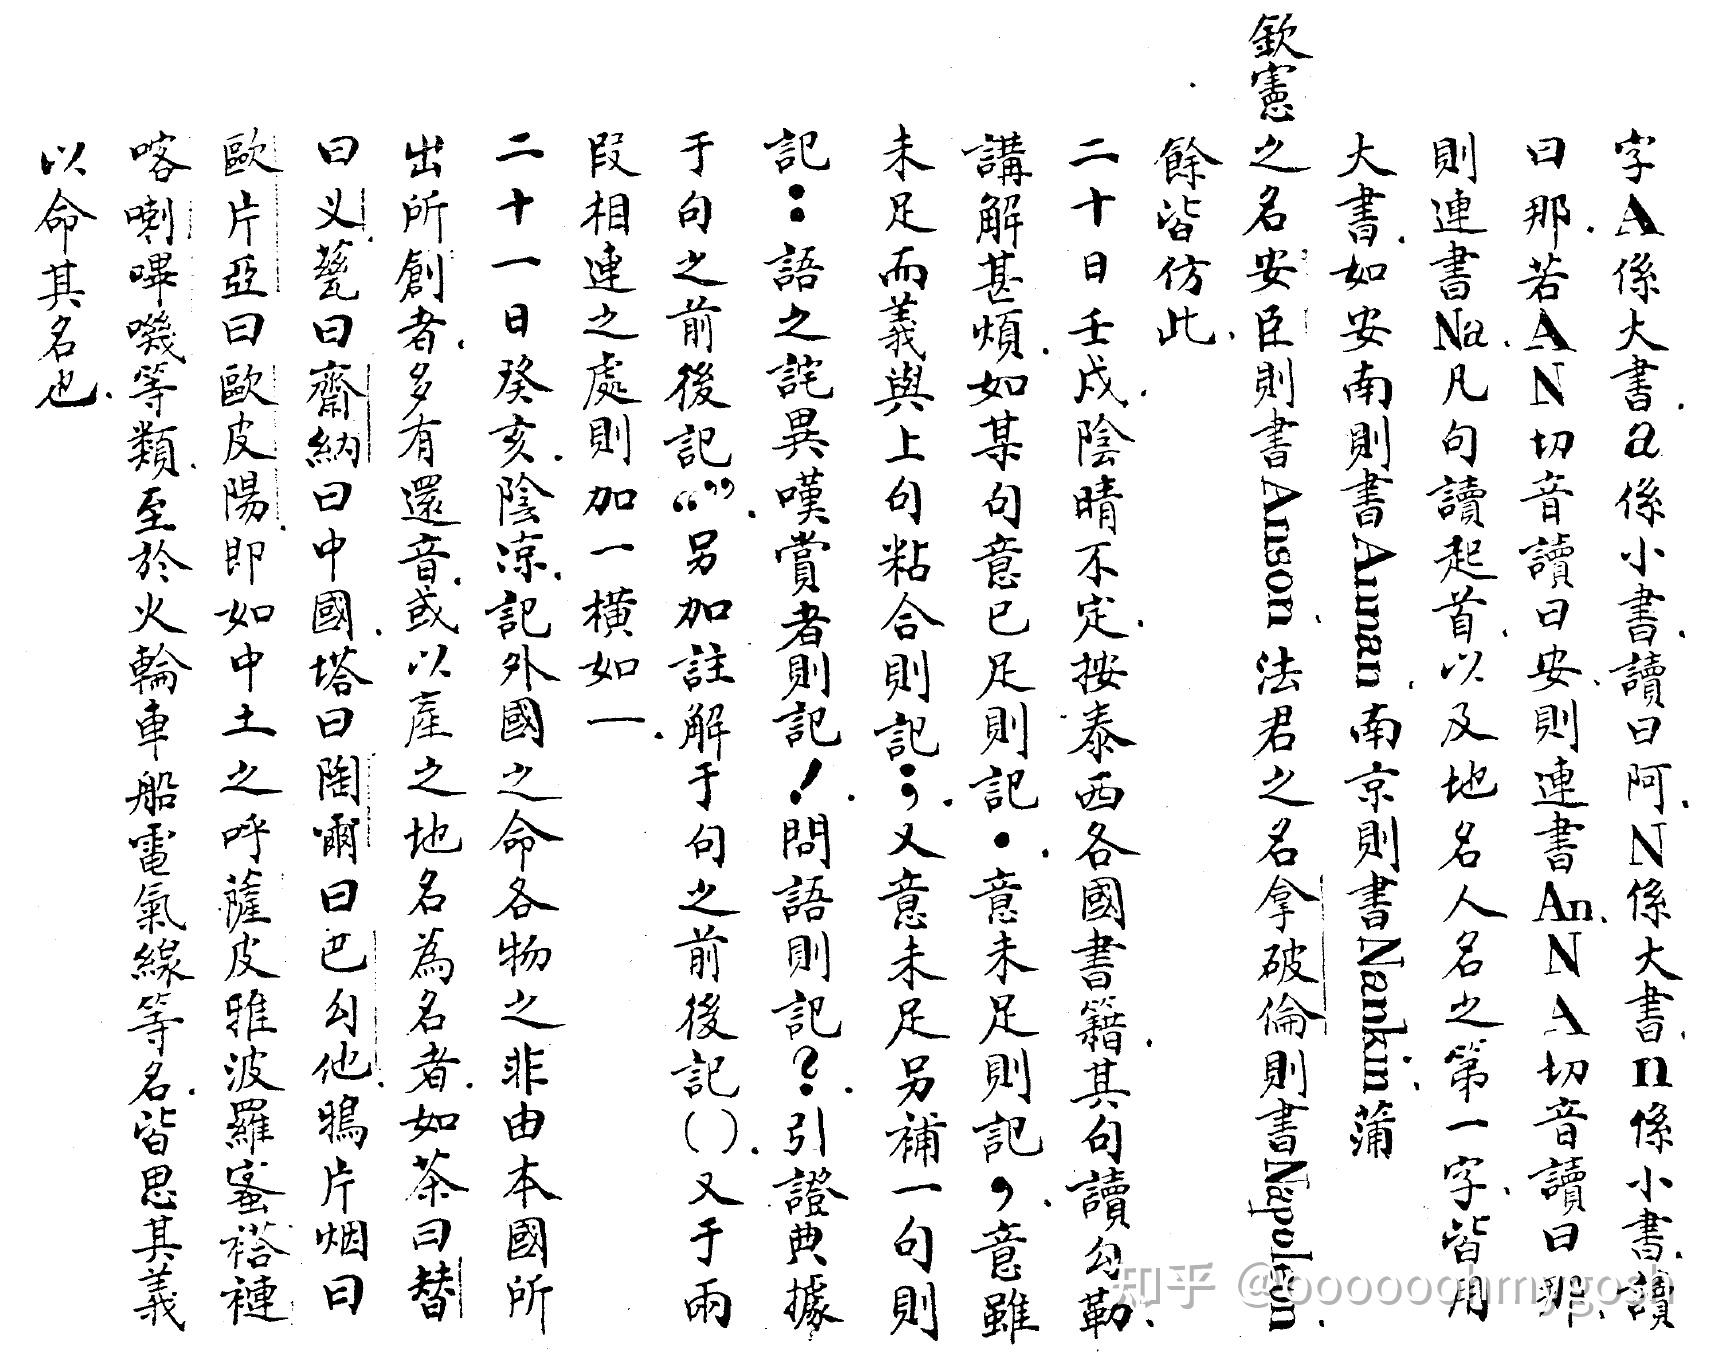 字A係大書.a係小書.讀曰阿.N係大書.n係小書.讀
曰那.若AN切音讀曰安.則連書An.NA切音讀曰那.
則連書Na.凡句讀起首.以及地名人名之第一字.皆用
大書.如安南則書Annan.南京則書Nankin.蒲
欽憲之名安臣則書Anson.法君之名拿破倫則書Napoleon.
餘皆仿此.
二十日壬戌.陰晴不定.按泰西各國書籍.其句讀勾勒.
講解甚煩.如某句意已足則記•.意未足則記,.意雖
未足而義與上句粘合則記;.又意未足另補一句則
記:語之詫異嘆賞者則記!.問語則記?.引證典據
于句之前後記“”.另加註解于句之前後記().又于兩
段相連之處則加一橫如—.
二十一日癸亥.陰涼.記外國之命各物之非由本國所
出所創者.多有還音.或以產之地名為名者.如茶曰替
曰义.甆曰齋納曰中國.塔曰陶爾曰巴勾他.鴉片烟曰
歐片亞曰歐皮陽.即如中土之呼薩皮雅波羅蜜褡褳
喀喇嗶嘰等類.至於火輪車船電氣線等名.皆思其義
以命其名也.
知乎 @ooooooohmygosh